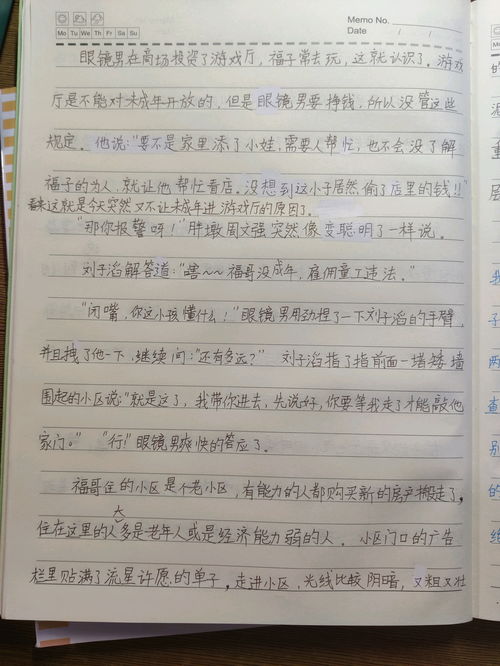 Memo No.
Mo Tu We Th Fr Sa Su
Date / /
眼镜男在商场投资了游戏厅，福子常去玩，这就认识了。游戏
厅是不能对未成年开放的，但是眼镜男要挣钱，所以没管这些
规定。他说："要不是家里添了小娃，需要人帮忙，也不会没了解
福子的为人，就让他帮忙看店。没想到这小子居然偷了店里的钱！！"
看来这就是今天突然又不让未成年进游戏厅的原因了。
"那你报警呀！"胖墩周文强突然像变聪明了一样说。
刘子滔解答道："嗐~~福哥没成年，雇佣童工违法。"
"闭嘴，你这小孩懂什么！"眼镜男用劲捏了一下刘子滔的手臂，
并且拽了他一下，继续问："还有多远？" 刘子滔指了指前面一堵矮墙
围起的小区说："就是这了，我带你进去，先说好，你要等我走了才能敲他
家门。" "行！"眼镜男爽快的答应了。
福哥住的小区是个老小区，有能力的人都购买新的房产搬走了，
住在这里的人大多是老年人或是经济能力弱的人。小区门口的广告
栏里贴满了流星许愿的单子，走进小区，光线比较阴暗，又粗又壮
的
重
层
我
子
两
查
别
的